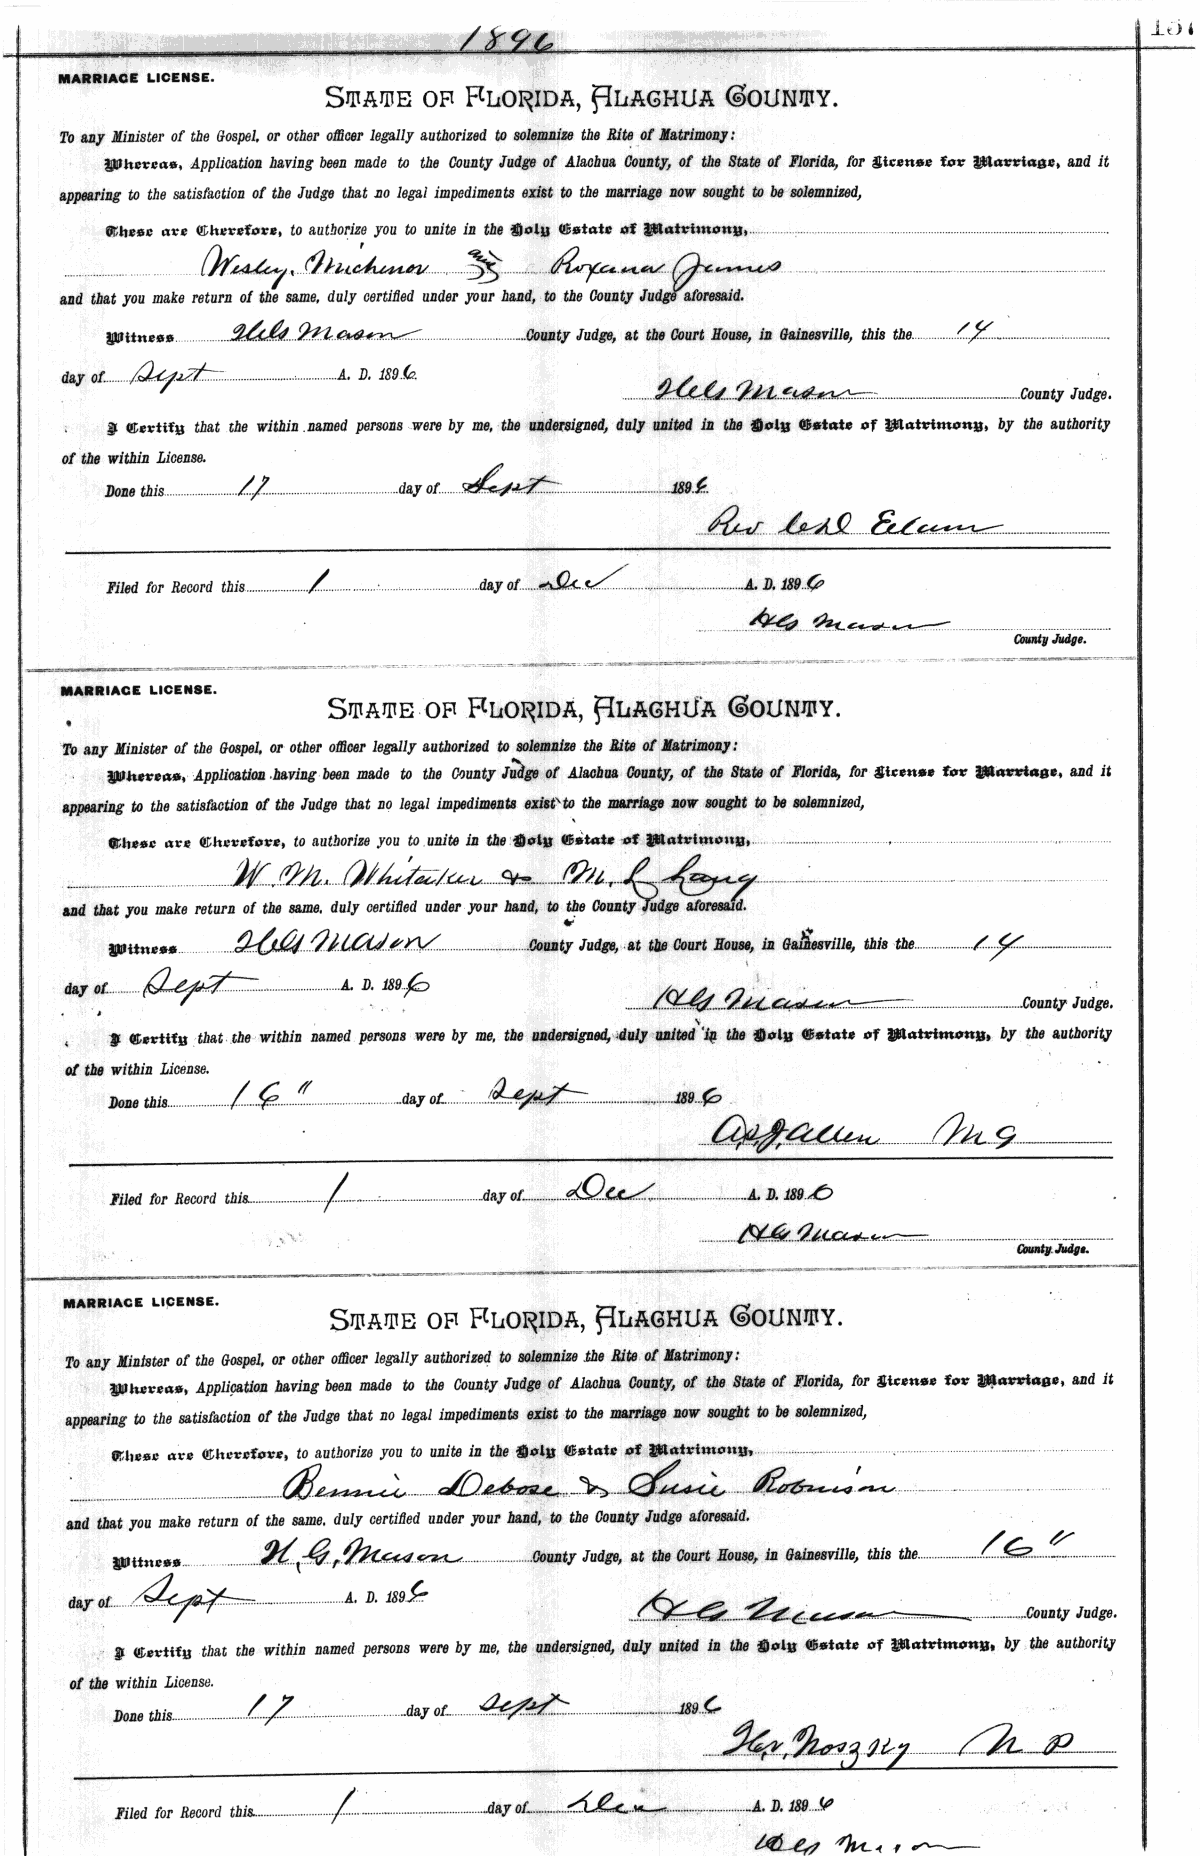 1896
157
MARRIAGE LICENSE.
STATE OF FLORIDA, ALACHUA COUNTY.
To any Minister of the Gospel, or other officer legally authorized to solemnize the Rite of Matrimony:
Whereas, Application having been made to the County Judge of Alachua County, of the State of Florida, for License for Marriage, and it
appearing to the satisfaction of the Judge that no legal impediments exist to the marriage now sought to be solemnized,
These are Therefore, to authorize you to unite in the Holy Estate of Matrimony,
Wesley Michenor and Roxana James
and that you make return of the same, duly certified under your hand, to the County Judge aforesaid.
Witness H G Mason County Judge, at the Court House, in Gainesville, this the 14
day of Sept A. D. 1896.
H G Mason County Judge.
I Certify that the within named persons were by me, the undersigned, duly united in the Holy Estate of Matrimony, by the authority
of the within License.
Done this 17 day of Sept 1896.
Rev Elam
Filed for Record this 1 day of Dec A. D. 1896
H G Mason
County Judge.
MARRIAGE LICENSE.
STATE OF FLORIDA, ALACHUA COUNTY.
To any Minister of the Gospel, or other officer legally authorized to solemnize the Rite of Matrimony:
Whereas, Application having been made to the County Judge of Alachua County, of the State of Florida, for License for Marriage, and it
appearing to the satisfaction of the Judge that no legal impediments exist to the marriage now sought to be solemnized,
These are Therefore, to authorize you to unite in the Holy Estate of Matrimony,
W. M. Whitaker & M. L Lang
and that you make return of the same, duly certified under your hand, to the County Judge aforesaid.
Witness H G Mason County Judge, at the Court House, in Gainesville, this the 14
day of Sept A. D. 1896
H G Mason County Judge.
I Certify that the within named persons were by me, the undersigned, duly united in the Holy Estate of Matrimony, by the authority
of the within License.
Done this 16" day of Sept 1896
Allen M G
Filed for Record this 1 day of Dec A. D. 1896
H G Mason
County Judge.
MARRIAGE LICENSE.
STATE OF FLORIDA, ALACHUA COUNTY.
To any Minister of the Gospel, or other officer legally authorized to solemnize the Rite of Matrimony:
Whereas, Application having been made to the County Judge of Alachua County, of the State of Florida, for License for Marriage, and it
appearing to the satisfaction of the Judge that no legal impediments exist to the marriage now sought to be solemnized,
These are Therefore, to authorize you to unite in the Holy Estate of Matrimony,
Bennie Debose & Susie Robinson
and that you make return of the same, duly certified under your hand, to the County Judge aforesaid.
Witness H. G. Mason County Judge, at the Court House, in Gainesville, this the 16"
day of Sept A. D. 1896
H G Mason County Judge.
I Certify that the within named persons were by me, the undersigned, duly united in the Holy Estate of Matrimony, by the authority
of the within License.
Done this 17 day of Sept 1896
Noszky N P
Filed for Record this 1 day of Dec A. D. 1896
H G Mason